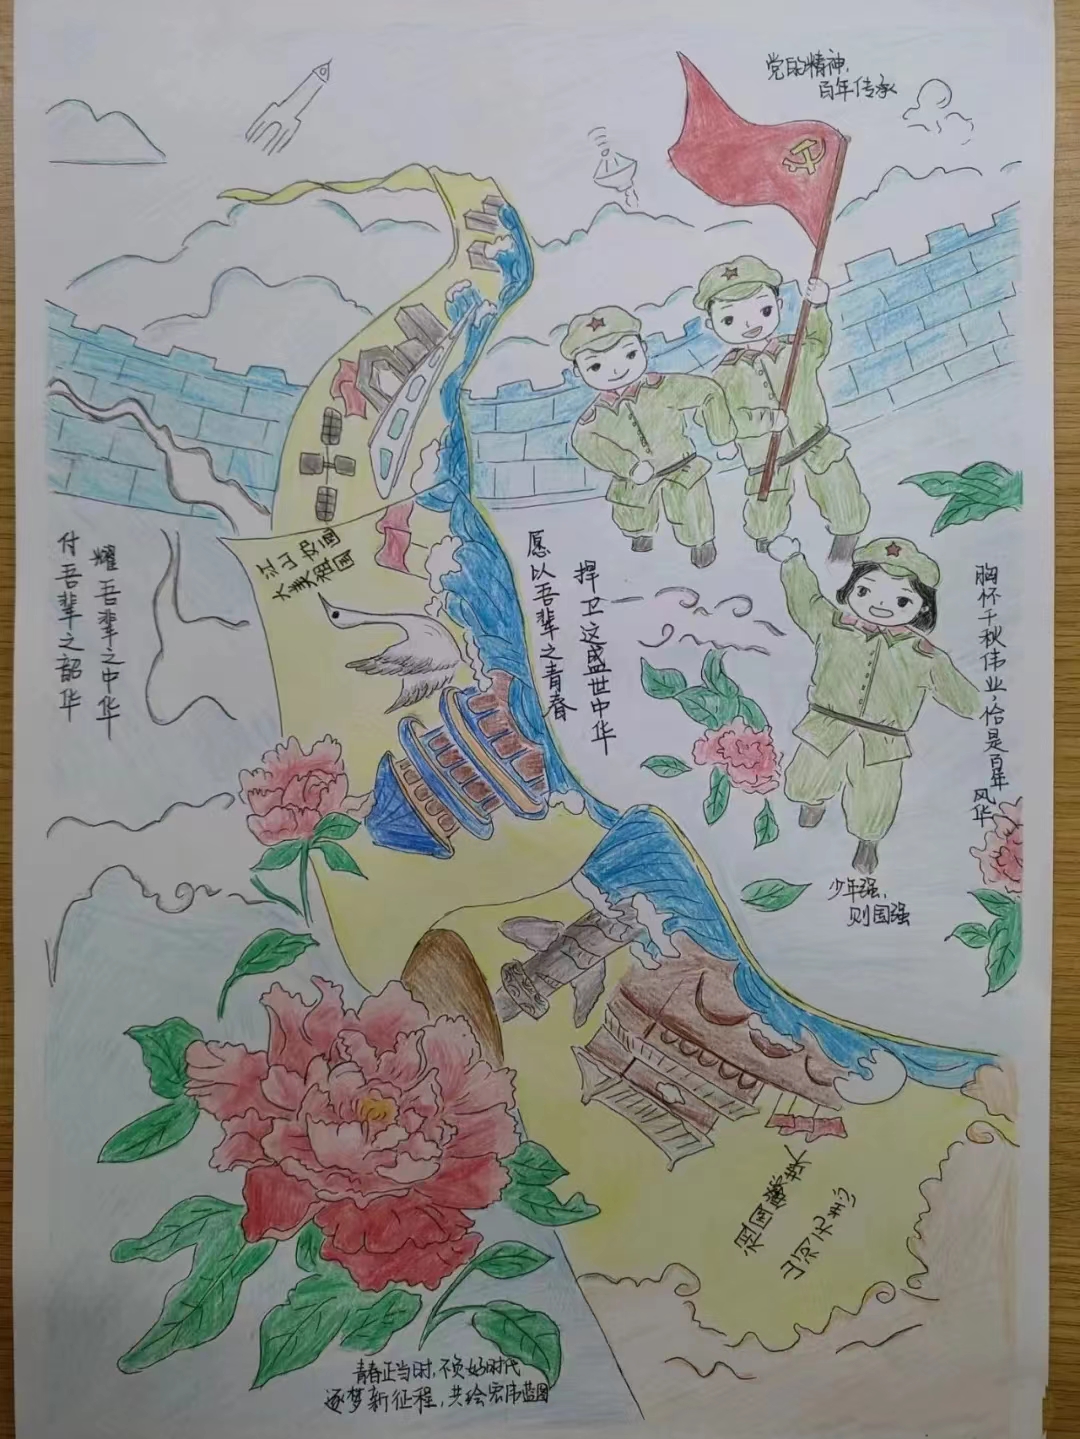 党的精神，
百年传承
江山如画
大美祖国
愿以吾辈之青春
捍卫这盛世中华
耀吾辈之中华
付吾辈之韶华
胸怀千秋伟业，恰是百年
风华
少年强，
则国强
祖国繁荣
青春正当时，不负好时代
逐梦新征程，共绘宏伟蓝图